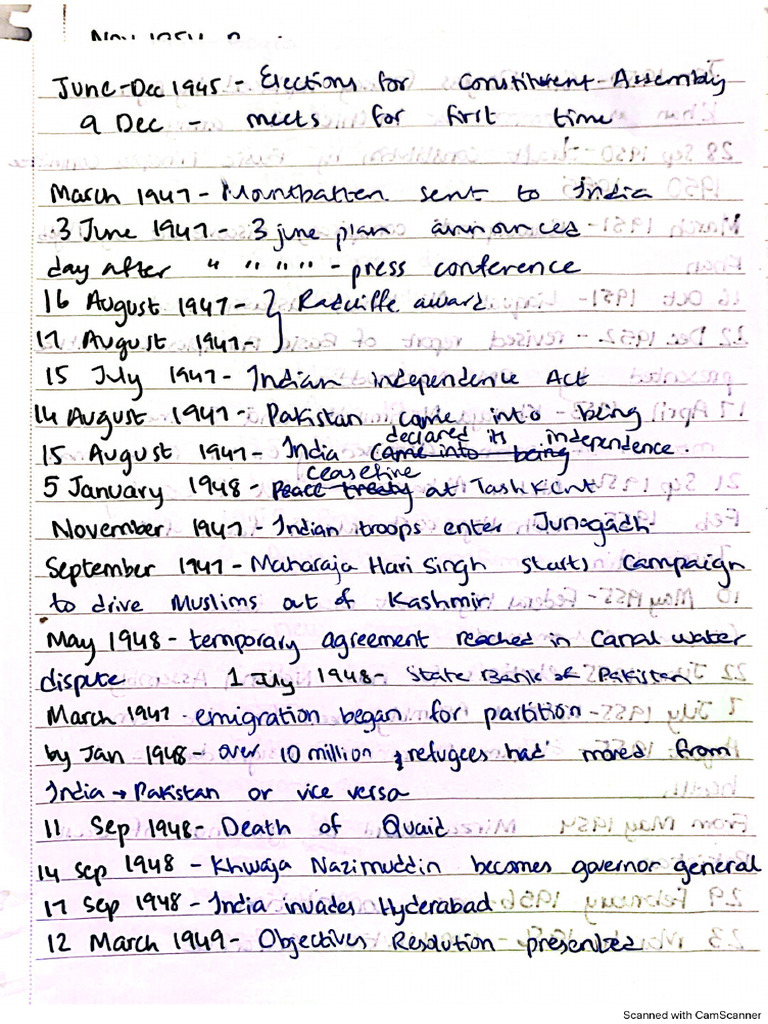 June-Dec 1945 - Elections for Constituent Assembly
9 Dec - meets for first time
March 1947 - Mountbatten sent to India
3 June 1947 - 3 june plan announced
day after " " " " " - press conference
16 August 1947 - } Radcliffe award
17 August 1947 -
15 July 1947 - Indian independence Act
14 August 1947 - Pakistan came into being
declared its
15 August 1947 - India came into being independence.
ceasefire
5 January 1948 - Peace treaty at Tashkent
November 1947 - Indian troops enter Junagadh
September 1947 - Maharaja Hari Singh starts campaign
to drive Muslims out of Kashmir
May 1948 - temporary agreement reached in Canal water
dispute 1 July 1948 - State Bank of Pakistan
March 1947 - emigration began for partition
by Jan 1948 - over 10 million refugees had moved from
India → Pakistan or vice versa
11 Sep 1948 - Death of Quaid
14 sep 1948 - Khwaja Nazimuddin becomes governor general
17 Sep 1948 - India invades Hyderabad
12 March 1949 - Objectives Resolution presented
Scanned with CamScanner